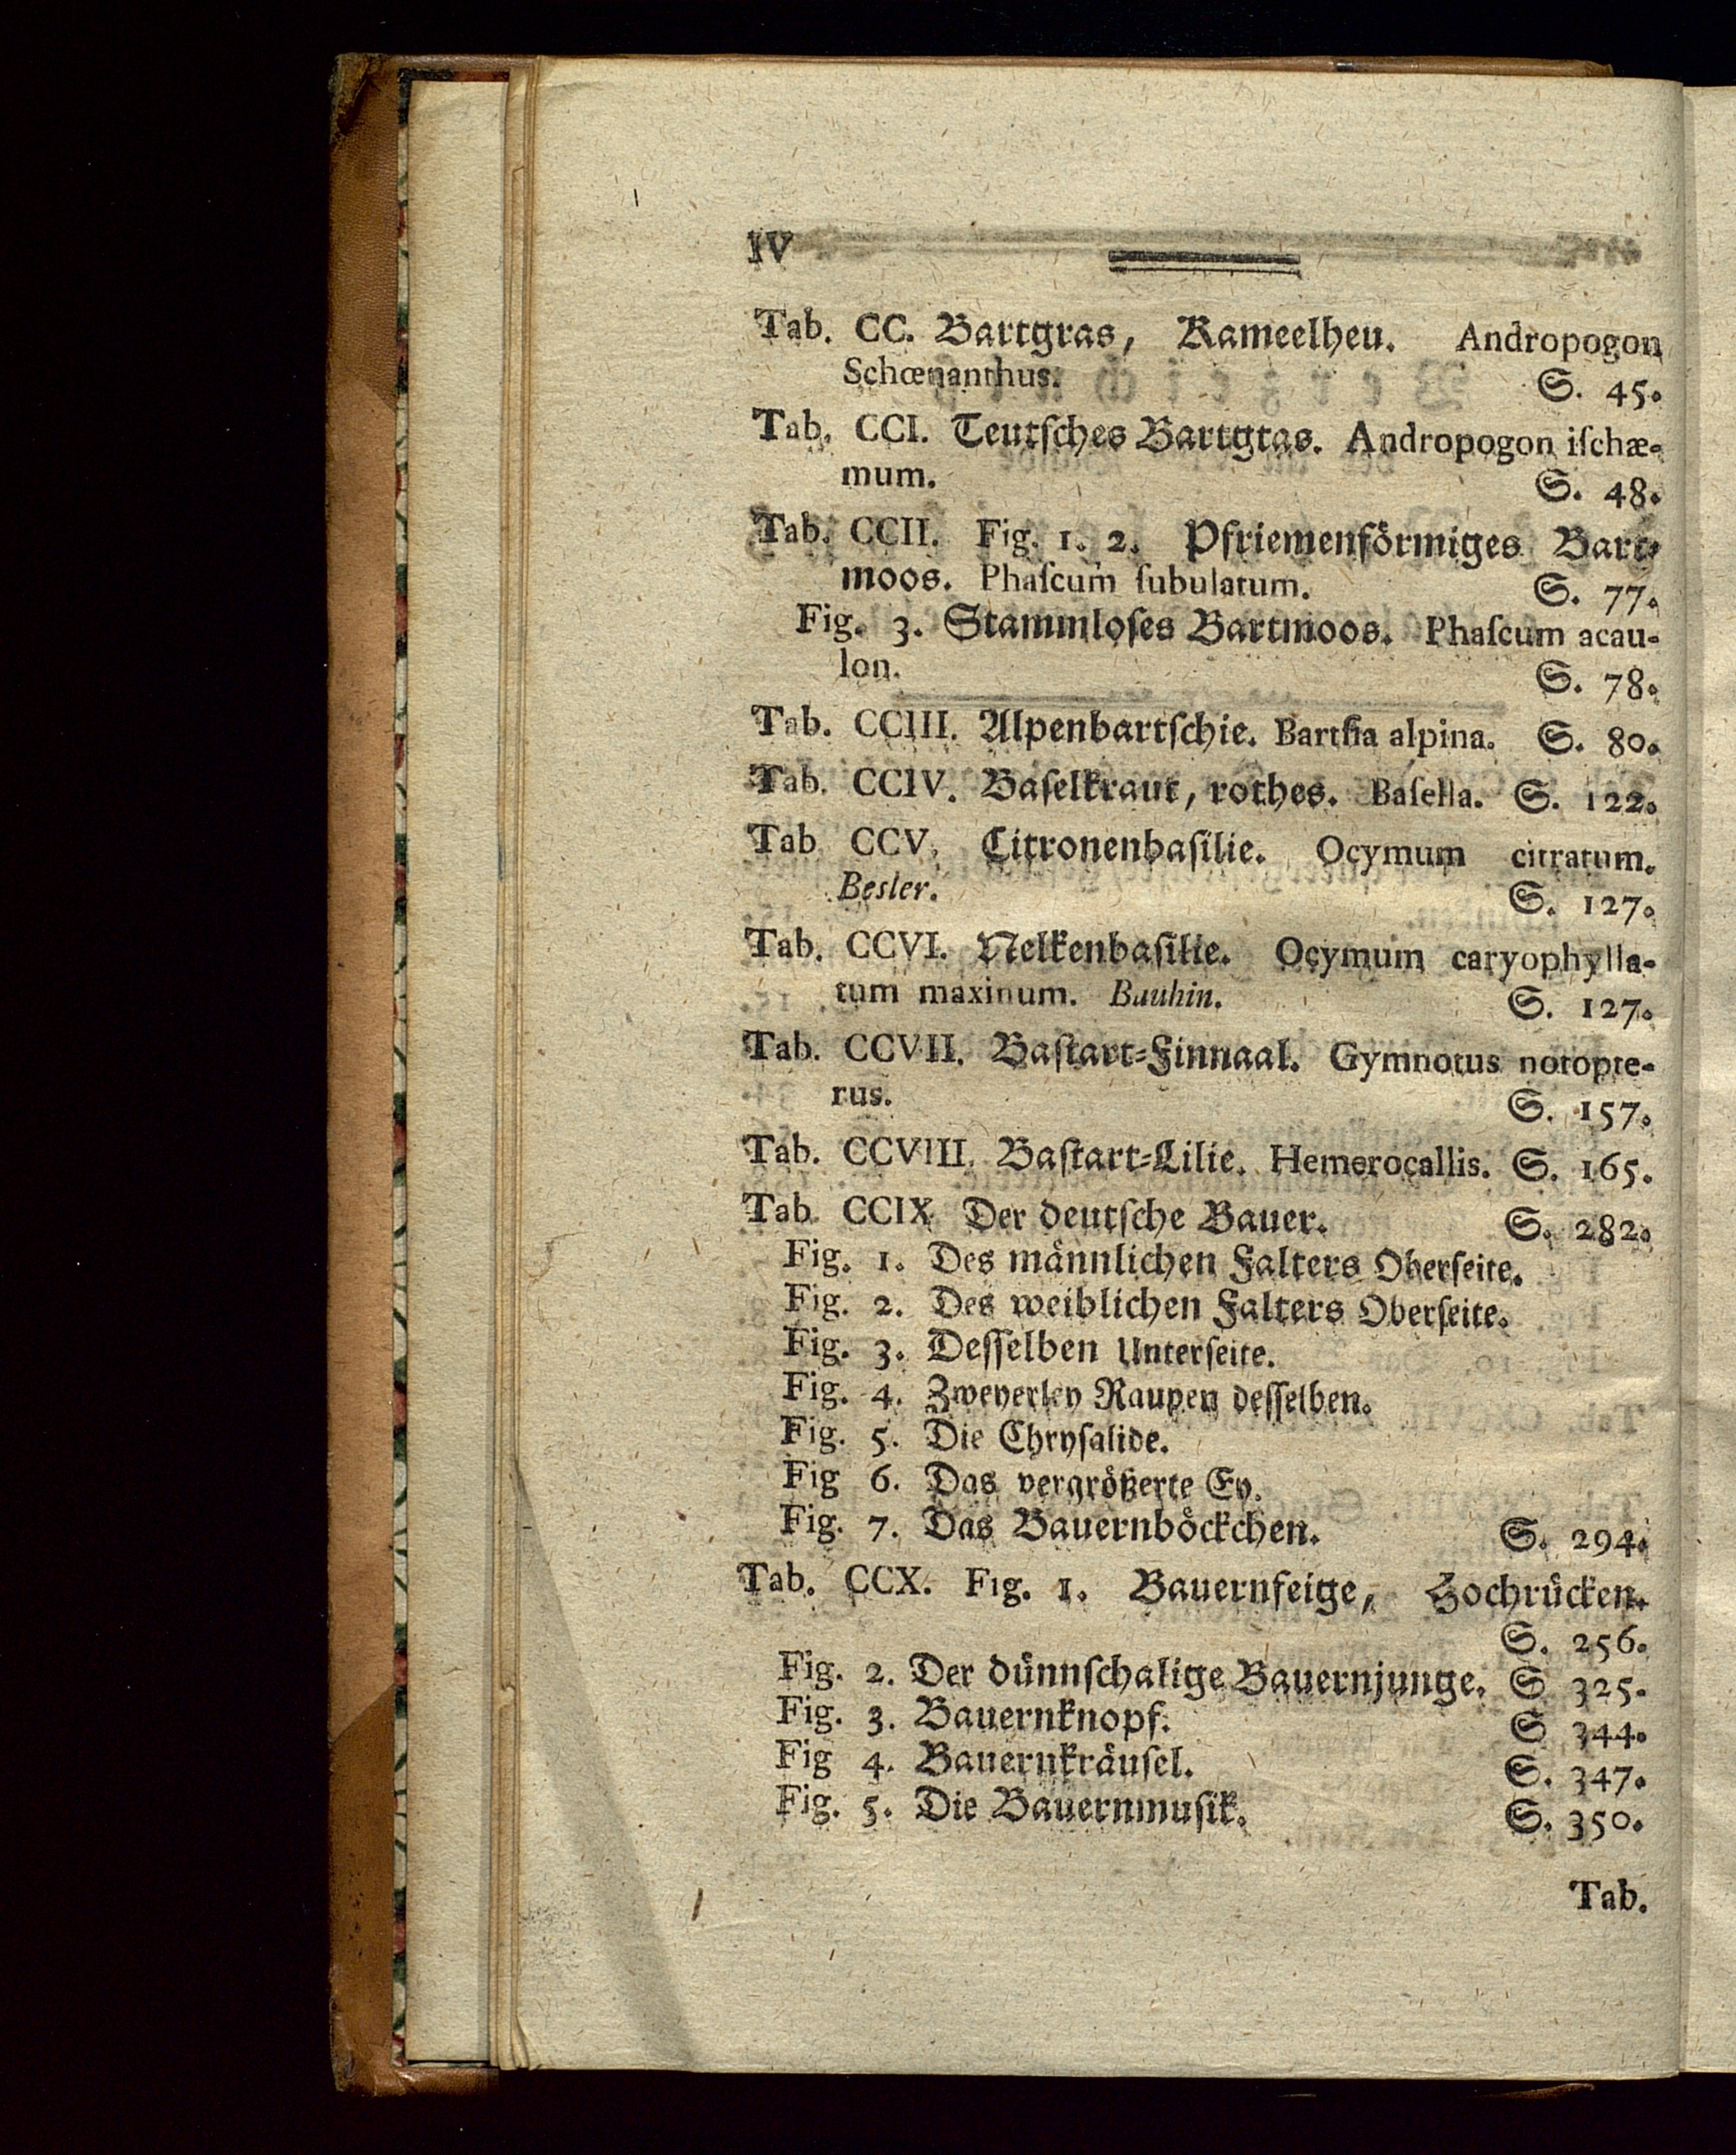 IV
Tab. CC. Bartgras, Kameelheu. Andropogon
Schœnanthus. S. 45.
Tab. CCI. Teutſches Bartgras. Andropogon iſchæ-
mum. S. 48.
Tab. CCII. Fig. 1. 2. Pfriemenförmiges Bart-
moos. Phaſcum ſubulatum. S. 77.
Fig. 3. Stammloſes Bartmoos. Phaſcum acau-
lon. S. 78.
Tab. CCIII. Alpenbartſchie. Bartſia alpina. S. 80.
Tab. CCIV. Baſelkraut, rothes. Baſella. S. 122.
Tab CCV. Citronenbaſilie. Ocymum citratum.
Besler. S. 127.
Tab. CCVI. Nelkenbaſilie. Ocymum caryophylla-
tum maximum. Bauhin. S. 127.
Tab. CCVII. Baſtart-Finnaal. Gymnotus notopte-
rus. S. 157.
Tab. CCVIII. Baſtart-Lilie. Hemerocallis. S. 165.
Tab. CCIX Der deutſche Bauer. S. 282.
Fig. 1. Des männlichen Falters Oberſeite.
Fig. 2. Des weiblichen Falters Oberſeite.
Fig. 3. Deſſelben Unterſeite.
Fig. 4. Zweyerley Raupen deſſelben.
Fig. 5. Die Chryſalide.
Fig 6. Das vergrößerte Ey.
Fig. 7. Das Bauernböckchen. S. 294.
Tab. CCX. Fig. 1. Bauernfeige, Hochrücken.
S. 256.
Fig. 2. Der dünnſchalige Bauernjunge. S 325.
Fig. 3. Bauernknopf. S 344.
Fig 4. Bauernkräuſel. S. 347.
Fig. 5. Die Bauernmuſik. S. 350.
Tab.